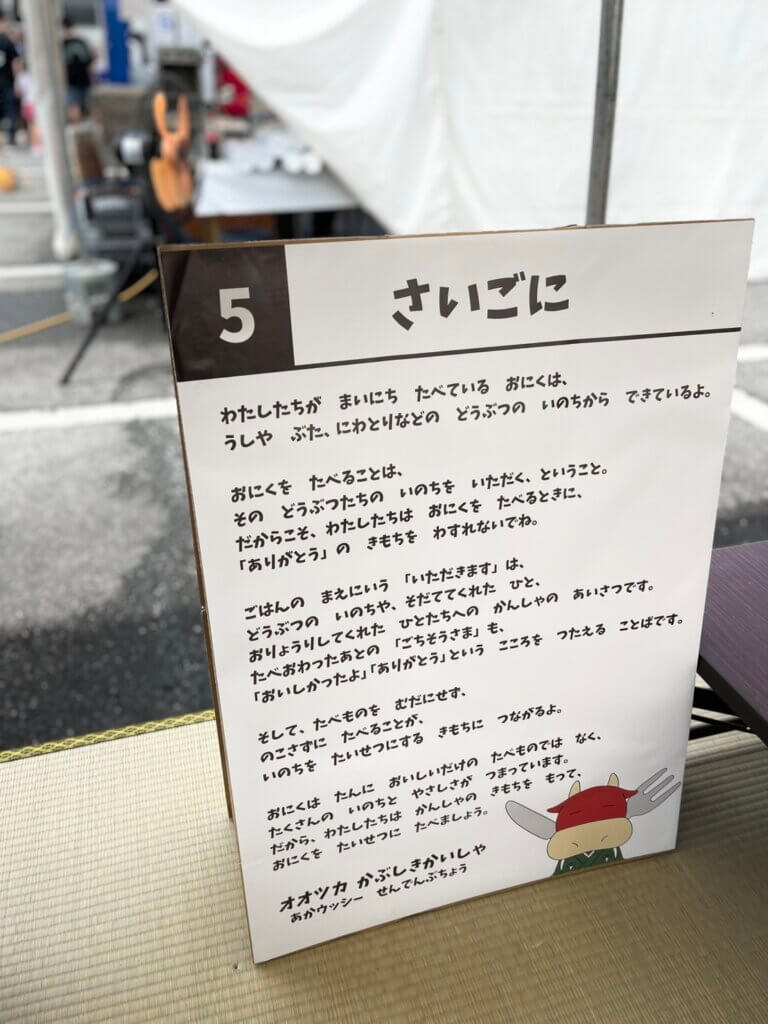 5
さいごに
わたしたちが　まいにち　たべている　おにくは、
うしや　ぶた、にわとりなどの　どうぶつの　いのちから　できているよ。
おにくを　たべることは、
その　どうぶつたちの　いのちを　いただく、ということ。
だからこそ、わたしたちは　おにくを　たべるときに、
「ありがとう」の　きもちを　わすれないでね。
ごはんの　まえにいう　「いただきます」は、
どうぶつの　いのちや、そだててくれた　ひと、
おりょうりしてくれた　ひとたちへの　かんしゃの　あいさつです。
たべおわったあとの　「ごちそうさま」も、
「おいしかったよ」「ありがとう」という　こころを　つたえる　ことばです。
そして、たべものを　むだにせず、
のこさずに　たべることが、
いのちを　たいせつにする　きもちに　つながるよ。
おにくは　たんに　おいしいだけの　たべものでは　なく、
たくさんの　いのちと　やさしさが　つまっています。
だから、わたしたちは　かんしゃの　きもちを　もって、
おにくを　たいせつに　たべましょう。
オオツカ かぶしきかいしゃ
あかウッシー　せんでんぶちょう